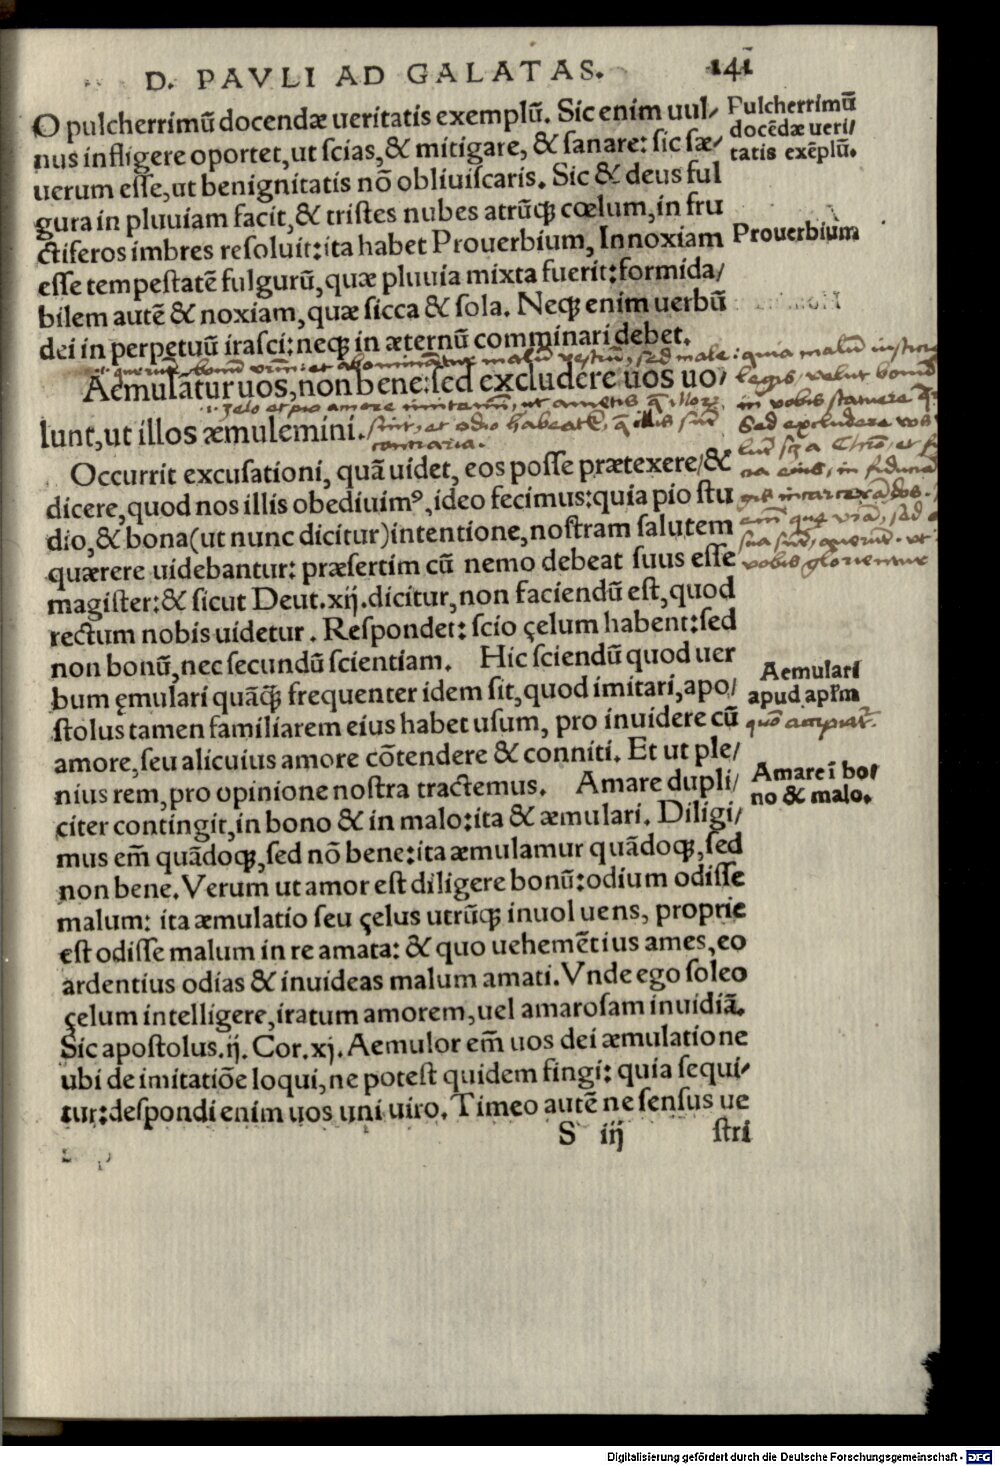 D. PAVLI AD GALATAS. 141
O pulcherrimū docendæ ueritatis exemplū. Sic enim uul-
nus infligere oportet, ut scias, & mitigare, & sanare: sic sæ-
uerum esse, ut benignitatis nō obliuiscaris. Sic & deus ful
gura in pluuiam facit, & tristes nubes atrūq; cœlum, in fru
ctiferos imbres resoluit: ita habet Prouerbium, Innoxiam
esse tempestatē fulgurū, quæ pluuia mixta fuerit: formida/
bilem autē & noxiam, quæ sicca & sola. Neq; enim uerbū
dei in perpetuū irasci: neq; in æternū comminari debet.
Pulcherrimū
docēdæ ueri/
tatis exēplū.
Prouerbium
bonū et abominātur malū vestrū, sed male: quia malū iusticie
Aemulatur uos, non bene: sed excludere uos uo/
.i. zelo et pio amore imitari, ut ametis q̄ illorū
lunt, ut illos æmulemini.
sunt, et odio habeatis, q̄ illis sūt
contraria.
legis, velut bonū
in vobis statuere
Sed excludere vos
a Chrō, et
eius, in fiducia
incarcerādos.
sed
sua
vobis glorientur
Occurrit excusationi, quā uidet, eos posse prætexere/&
dicere, quod nos illis obediuimꝰ, ideo fecimus: quia pio stu
dio, & bona (ut nunc dicitur) intentione, nostram salutem
quærere uidebantur: præsertim cū nemo debeat suus esse
magister: & sicut Deut. xij. dicitur, non faciendū est, quod
rectum nobis uidetur. Respondet: scio çelum habent: sed
non bonū, nec secundū scientiam. Hic sciendū quod uer
bum ęmulari quāq̄ frequenter idem sit, quod imitari, apo/
stolus tamen familiarem eius habet usum, pro inuidere cū
amore, seu alicuius amore cōtendere & conniti. Et ut ple/
nius rem, pro opinione nostra tractemus. Amare dupli/
citer contingit, in bono & in malo: ita & æmulari. Diligi/
mus em̄ quādoq;, sed nō bene: ita æmulamur quādoq;, sed
non bene. Verum ut amor est diligere bonū: odium odisse
malum: ita æmulatio seu çelus utrūq; inuoluens, proprie
est odisse malum in re amata: & quo uehemētius ames, eo
ardentius odias & inuideas malum amati. Vnde ego soleo
çelum intelligere, iratum amorem, uel amarosam inuidiā.
Sic apostolus. ij. Cor. xj. Aemulor em̄ uos dei æmulatione
ubi de imitatiōe loqui, ne potest quidem fingi: quia sequi-
tur: despondi enim uos uni uiro. Timeo autē ne sensus ue
Aemulari
apud apłm
quō accipiat̄.
Amare ī bo/
no & malo.
S iij stri
Digitalisierung gefördert durch die Deutsche Forschungsgemeinschaft - DFG